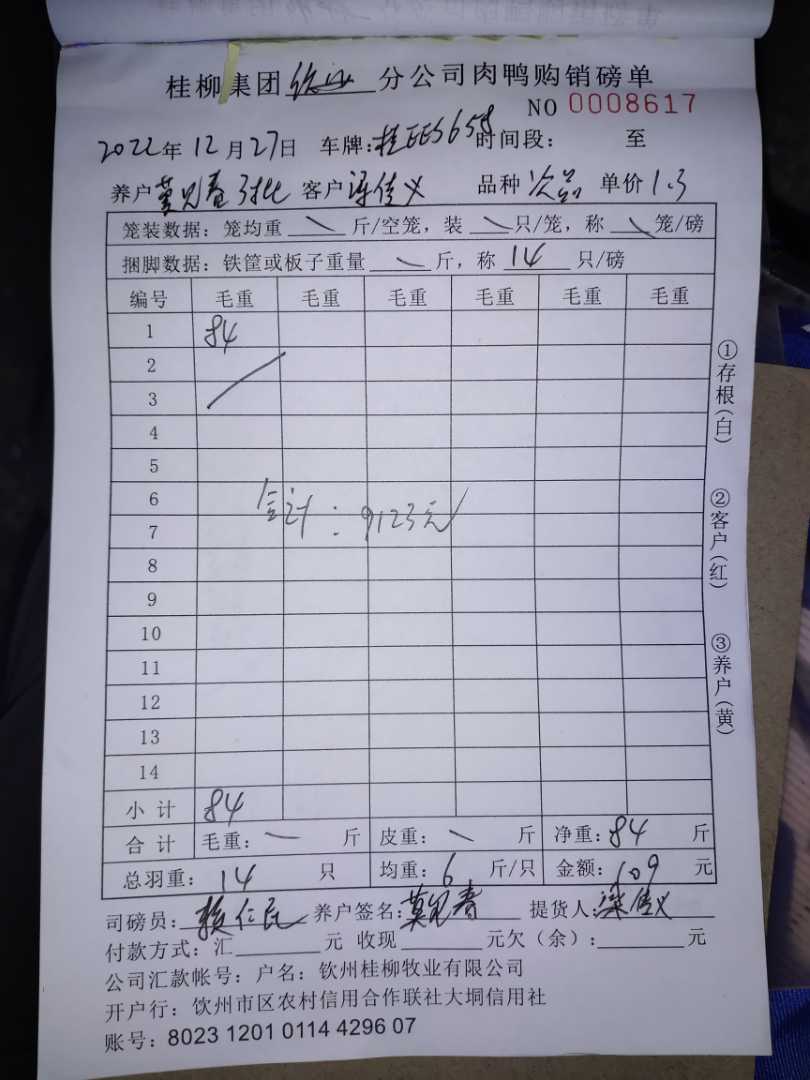 桂柳集团钦州分公司肉鸭购销磅单
NO 0008617
2022年12月27日 车牌:桂EES658 时间段: 至
养户莫见春 客户梁佳义 品种 次品 单价 1.3
笼装数据: 笼均重 \ 斤/空笼, 装 \ 只/笼, 称 \ 笼/磅
捆脚数据: 铁筐或板子重量 \ 斤, 称 14 只/磅
编号 毛重 毛重 毛重 毛重 毛重 毛重
1 84
2
3
4
5
6
合计: 9123元
7
8
9
10
11
12
13
14
小计 84
合计 毛重: — 斤 皮重: \ 斤 净重: 84 斤
总羽重: 14 只 均重: 6 斤/只 金额: 109 元
司磅员: 赖仁民 养户签名: 莫见春 提货人: 梁佳义
付款方式: 汇 元 收现 元欠(余): 元
公司汇款帐号: 户名: 钦州桂柳牧业有限公司
开户行: 饮州市区农村信用合作联社大垌信用社
账号: 8023 1201 0114 4296 07
①存根(白)
②客户(红)
③养户(黄)